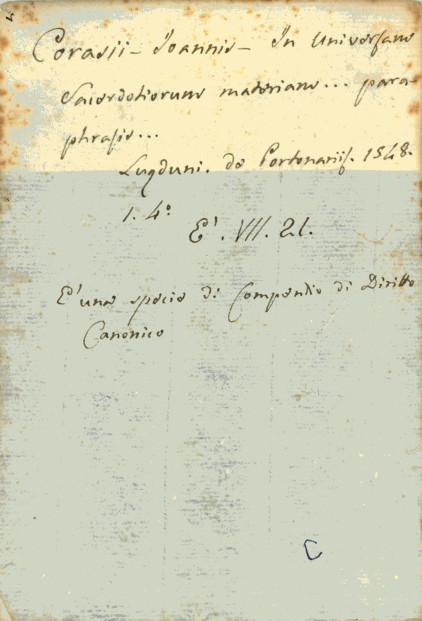 Corasii - Joannis - In Universam
Sacerdotiorum materiam... para-
phrasis...
Lugduni. de Portonariis. 1548.
1. 4°
E'. VII. 21.
E' una specie di Compendio di Diritto
Canonico